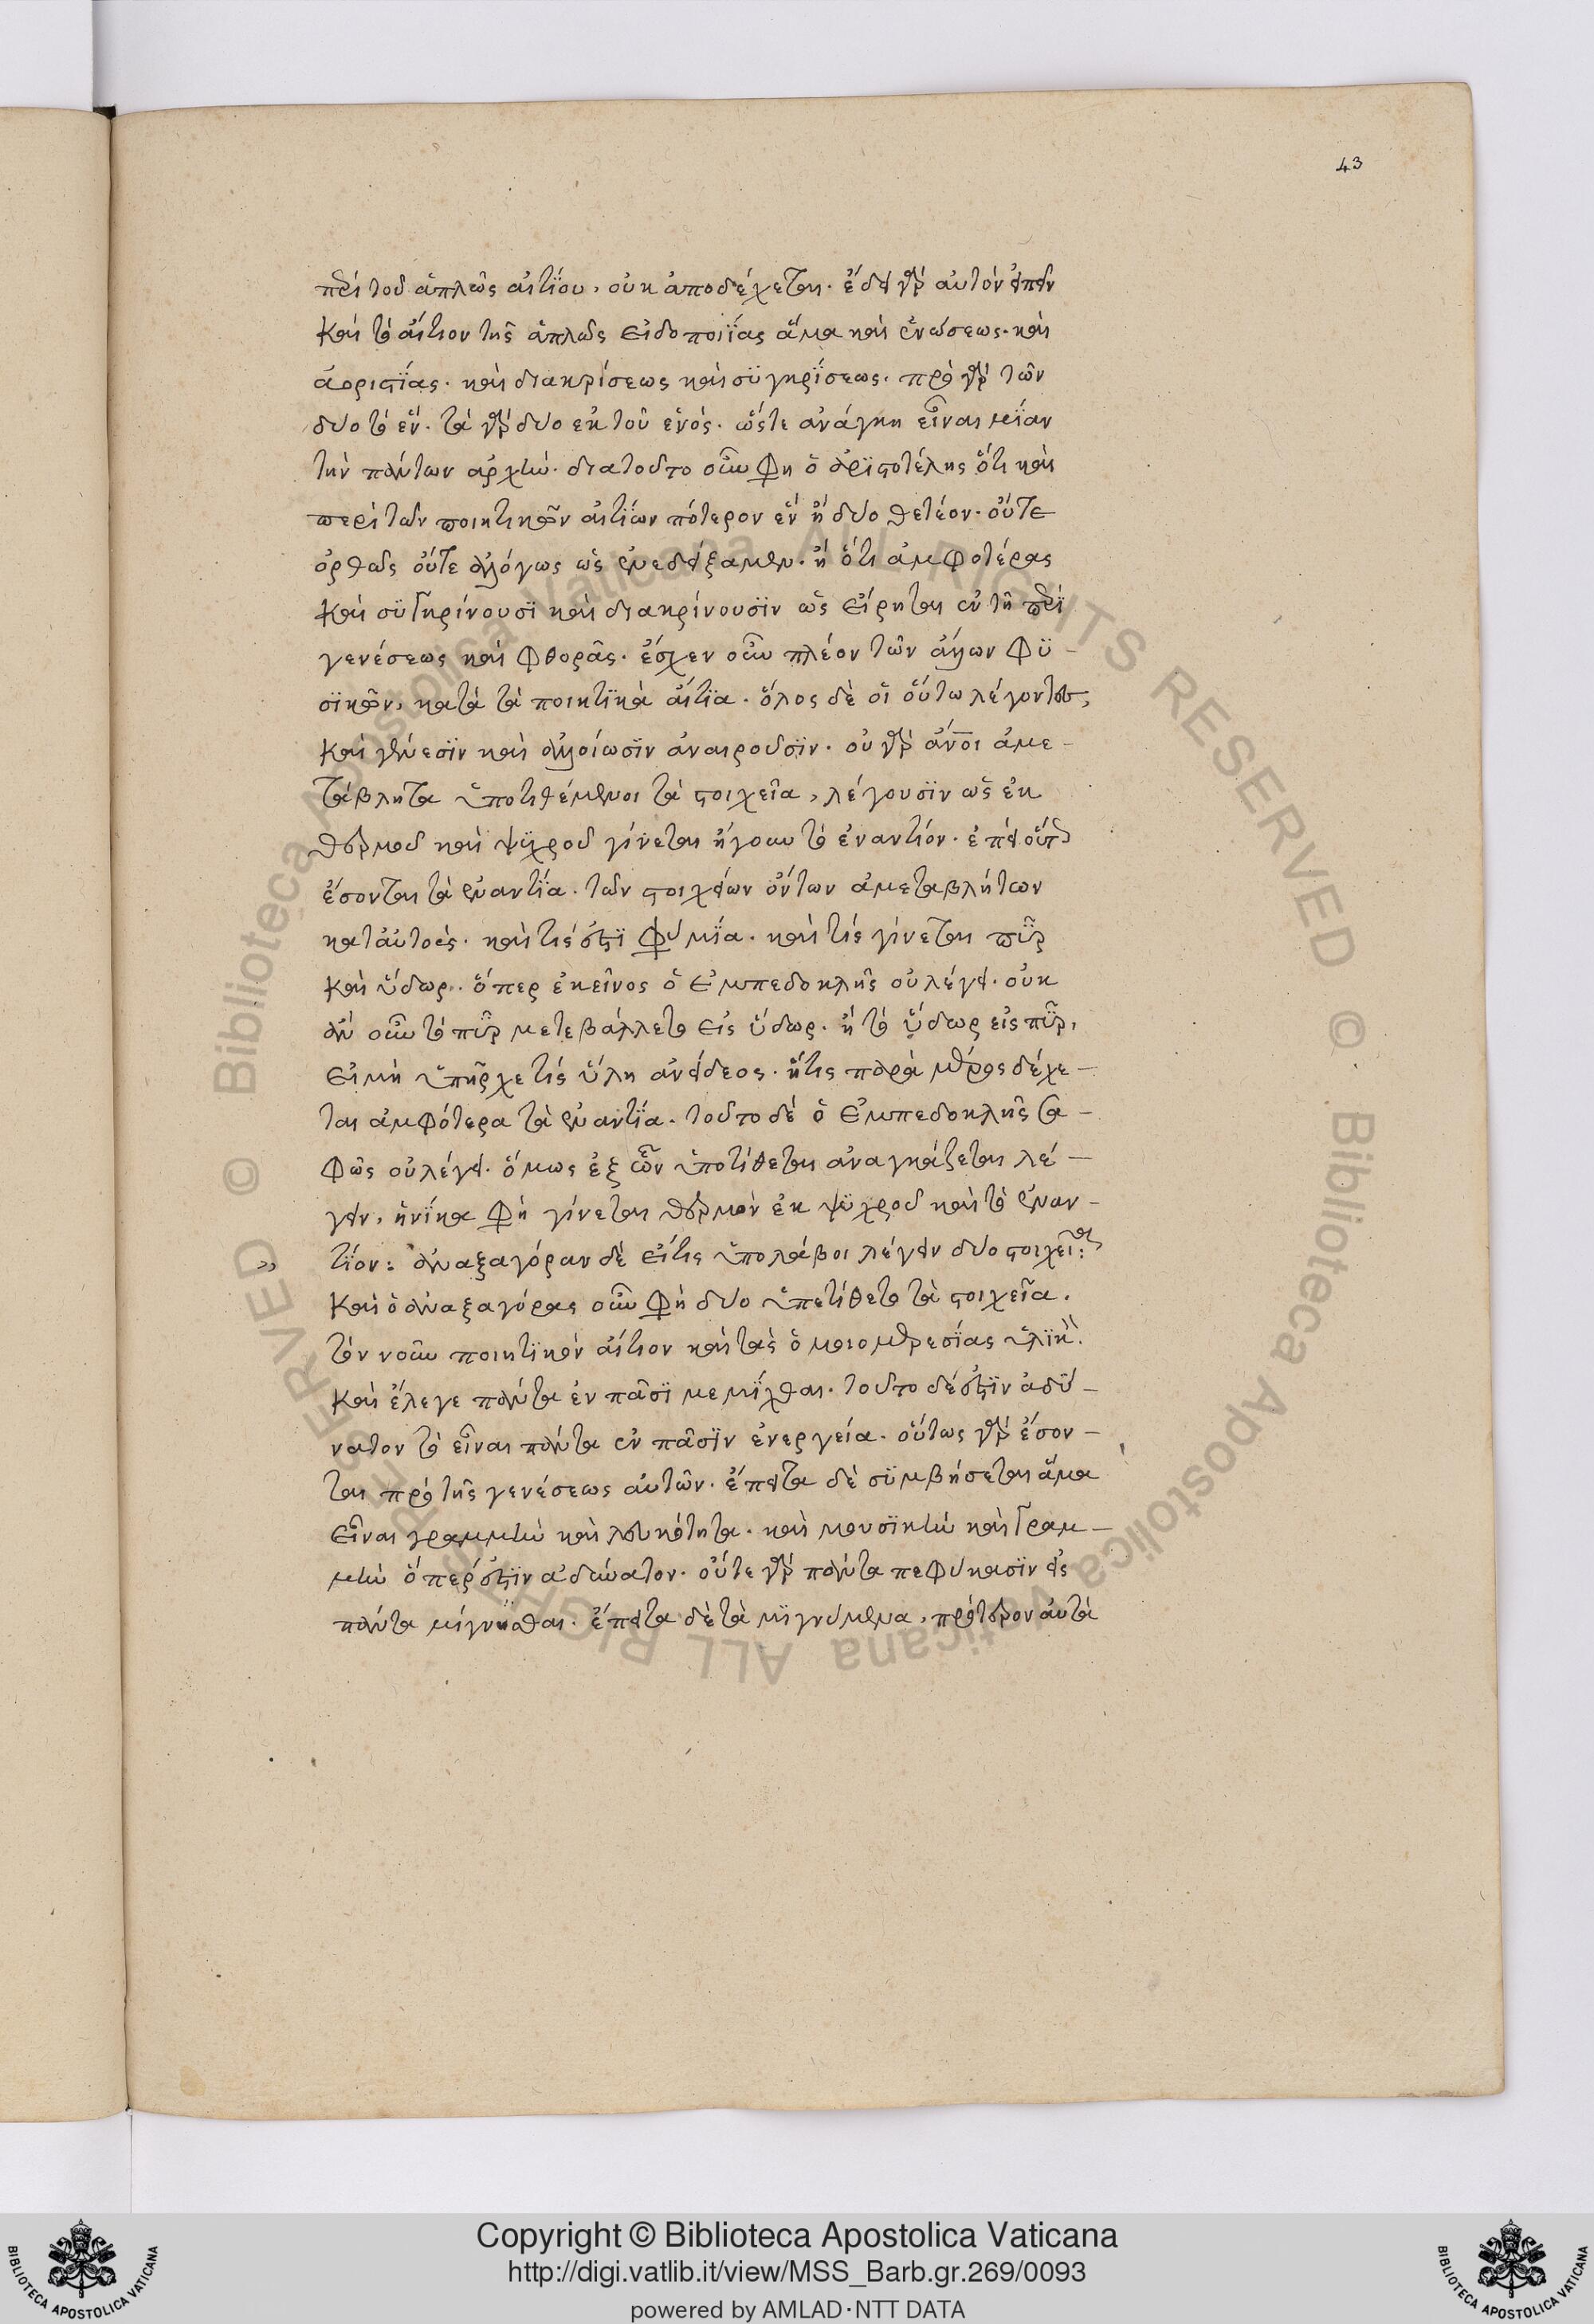 43
περὶ τοῦ ἁπλῶς αἰτίου, οὐκ ἀποδέχεται. ἔδει γὰρ αὐτὸν εἰπεῖν
καὶ τὸ αἴτιον τῆς ἁπλῶς εἰδοποιΐας ἅμα καὶ ἑνώσεως. καὶ
ἀοριστίας. καὶ διακρίσεως καὶ συγκρίσεως. πρὸ γὰρ τῶν
δύο τὸ ἕν. τὰ γὰρ δύο ἐκ τοῦ ἑνός. ὥστε ἀνάγκη εἶναι μίαν
τὴν πάντων ἀρχήν. διατοῦτο οὖν φη ὁ ἀριστοτέλης ὅτι καὶ
περὶ τῶν ποιητικῶν αἰτίων πότερον ἓν ἢ δύο θετέον. οὔτε
ὀρθῶς οὔτε ἀλόγως ὡς ἐνεδείξαμεν. ἢ ὅτι ἀμφοτέρας
καὶ συγκρίνουσι καὶ διακρίνουσιν ὡς εἴρηται ἐν τῇ περὶ
γενέσεως καὶ φθορᾶς. ἔσχεν οὖν πλέον τῶν ἄλλων φυ-
σικῶν, κατὰ τὰ ποιητικὰ αἴτια. ὅλος δὲ οἱ οὕτω λέγοντες,
καὶ γένεσιν καὶ ἀλλοίωσιν ἀναιροῦσιν. οὐ γὰρ ἄνοι ἀμε-
τάβλητα ὑποτιθέμενοι τὰ στοιχεῖα, λέγουσιν ὡς ἐκ
θερμοῦ καὶ ψυχροῦ γίνεται ἤγουν τὸ ἐναντίον. ἐπεὶ οὕτω
ἔσονται τὰ ἐναντία. τῶν στοιχείων ὄντων ἀμεταβλήτων
κατ αὐτοὺς. καὶ τίς ἐστι φυμία. καὶ τίς γίνεται πῦρ
καὶ ὕδωρ. ὅπερ ἐκεῖνος ὁ ἐμπεδοκλῆς οὐ λέγει. οὐκ
ἂν οὖν τὸ πῦρ μετεβάλλετο εἰς ὕδωρ. ἢ τὸ ὕδωρ εἰς πῦρ,
εἰμὴ ὑπῆρχε τίς ὕλη ἀνείδεος. ἥτις παρὰ μέρος δέχε-
ται ἀμφότερα τὰ ἐναντία. τοῦτο δέ ὁ ἐμπεδοκλῆς σα-
φῶς οὐ λέγει. ὅμως ἐξ ὧν ὑποτίθεται ἀναγκάζεται λέ-
γειν, ἡνίκα φὴ γίνεται θερμὸν ἐκ ψυχροῦ καὶ τὸ ἐναν-
τίον: ἀναξαγόραν δὲ εἴτις ὑπολάβοι λέγειν δύο στοιχεῖα:
καὶ ὁ ἀναξαγόρας οὖν φὴ δύο ὑπετίθετο τὰ στοιχεῖα.
τὸν νοῦν ποιητικὸν αἴτιον καὶ τὰς ὁμοιομερεσίας ὑλικὴ.
καὶ ἔλεγε πάντα ἐν πᾶσι μεμίχθαι. τοῦτο δέ ἐστιν ἀδύ-
νατον τὸ εἶναι πάντα ἐν πᾶσιν ἐνεργεία. οὕτως γὰρ ἔσον-
ται πρὸ τῆς γενέσεως αὐτῶν. ἔπειτα δὲ συμβήσεται ἅμα
εἶναι γραμμὴν καὶ λευκότητα. καὶ μουσικὴν καὶ γραμ-
μὴν ὅπερ ἐστὶν ἀδύνατον. οὔτε γὰρ πάντα πεφύκασιν εἰς
πάντα μίγνυσθαι. ἔπειτα δὲ τὰ μιγνύμενα, πρότερον αὐτὰ
Copyright © Biblioteca Apostolica Vaticana
http://digi.vatlib.it/view/MSS_Barb.gr.269/0093
powered by AMLAD·NTT DATA